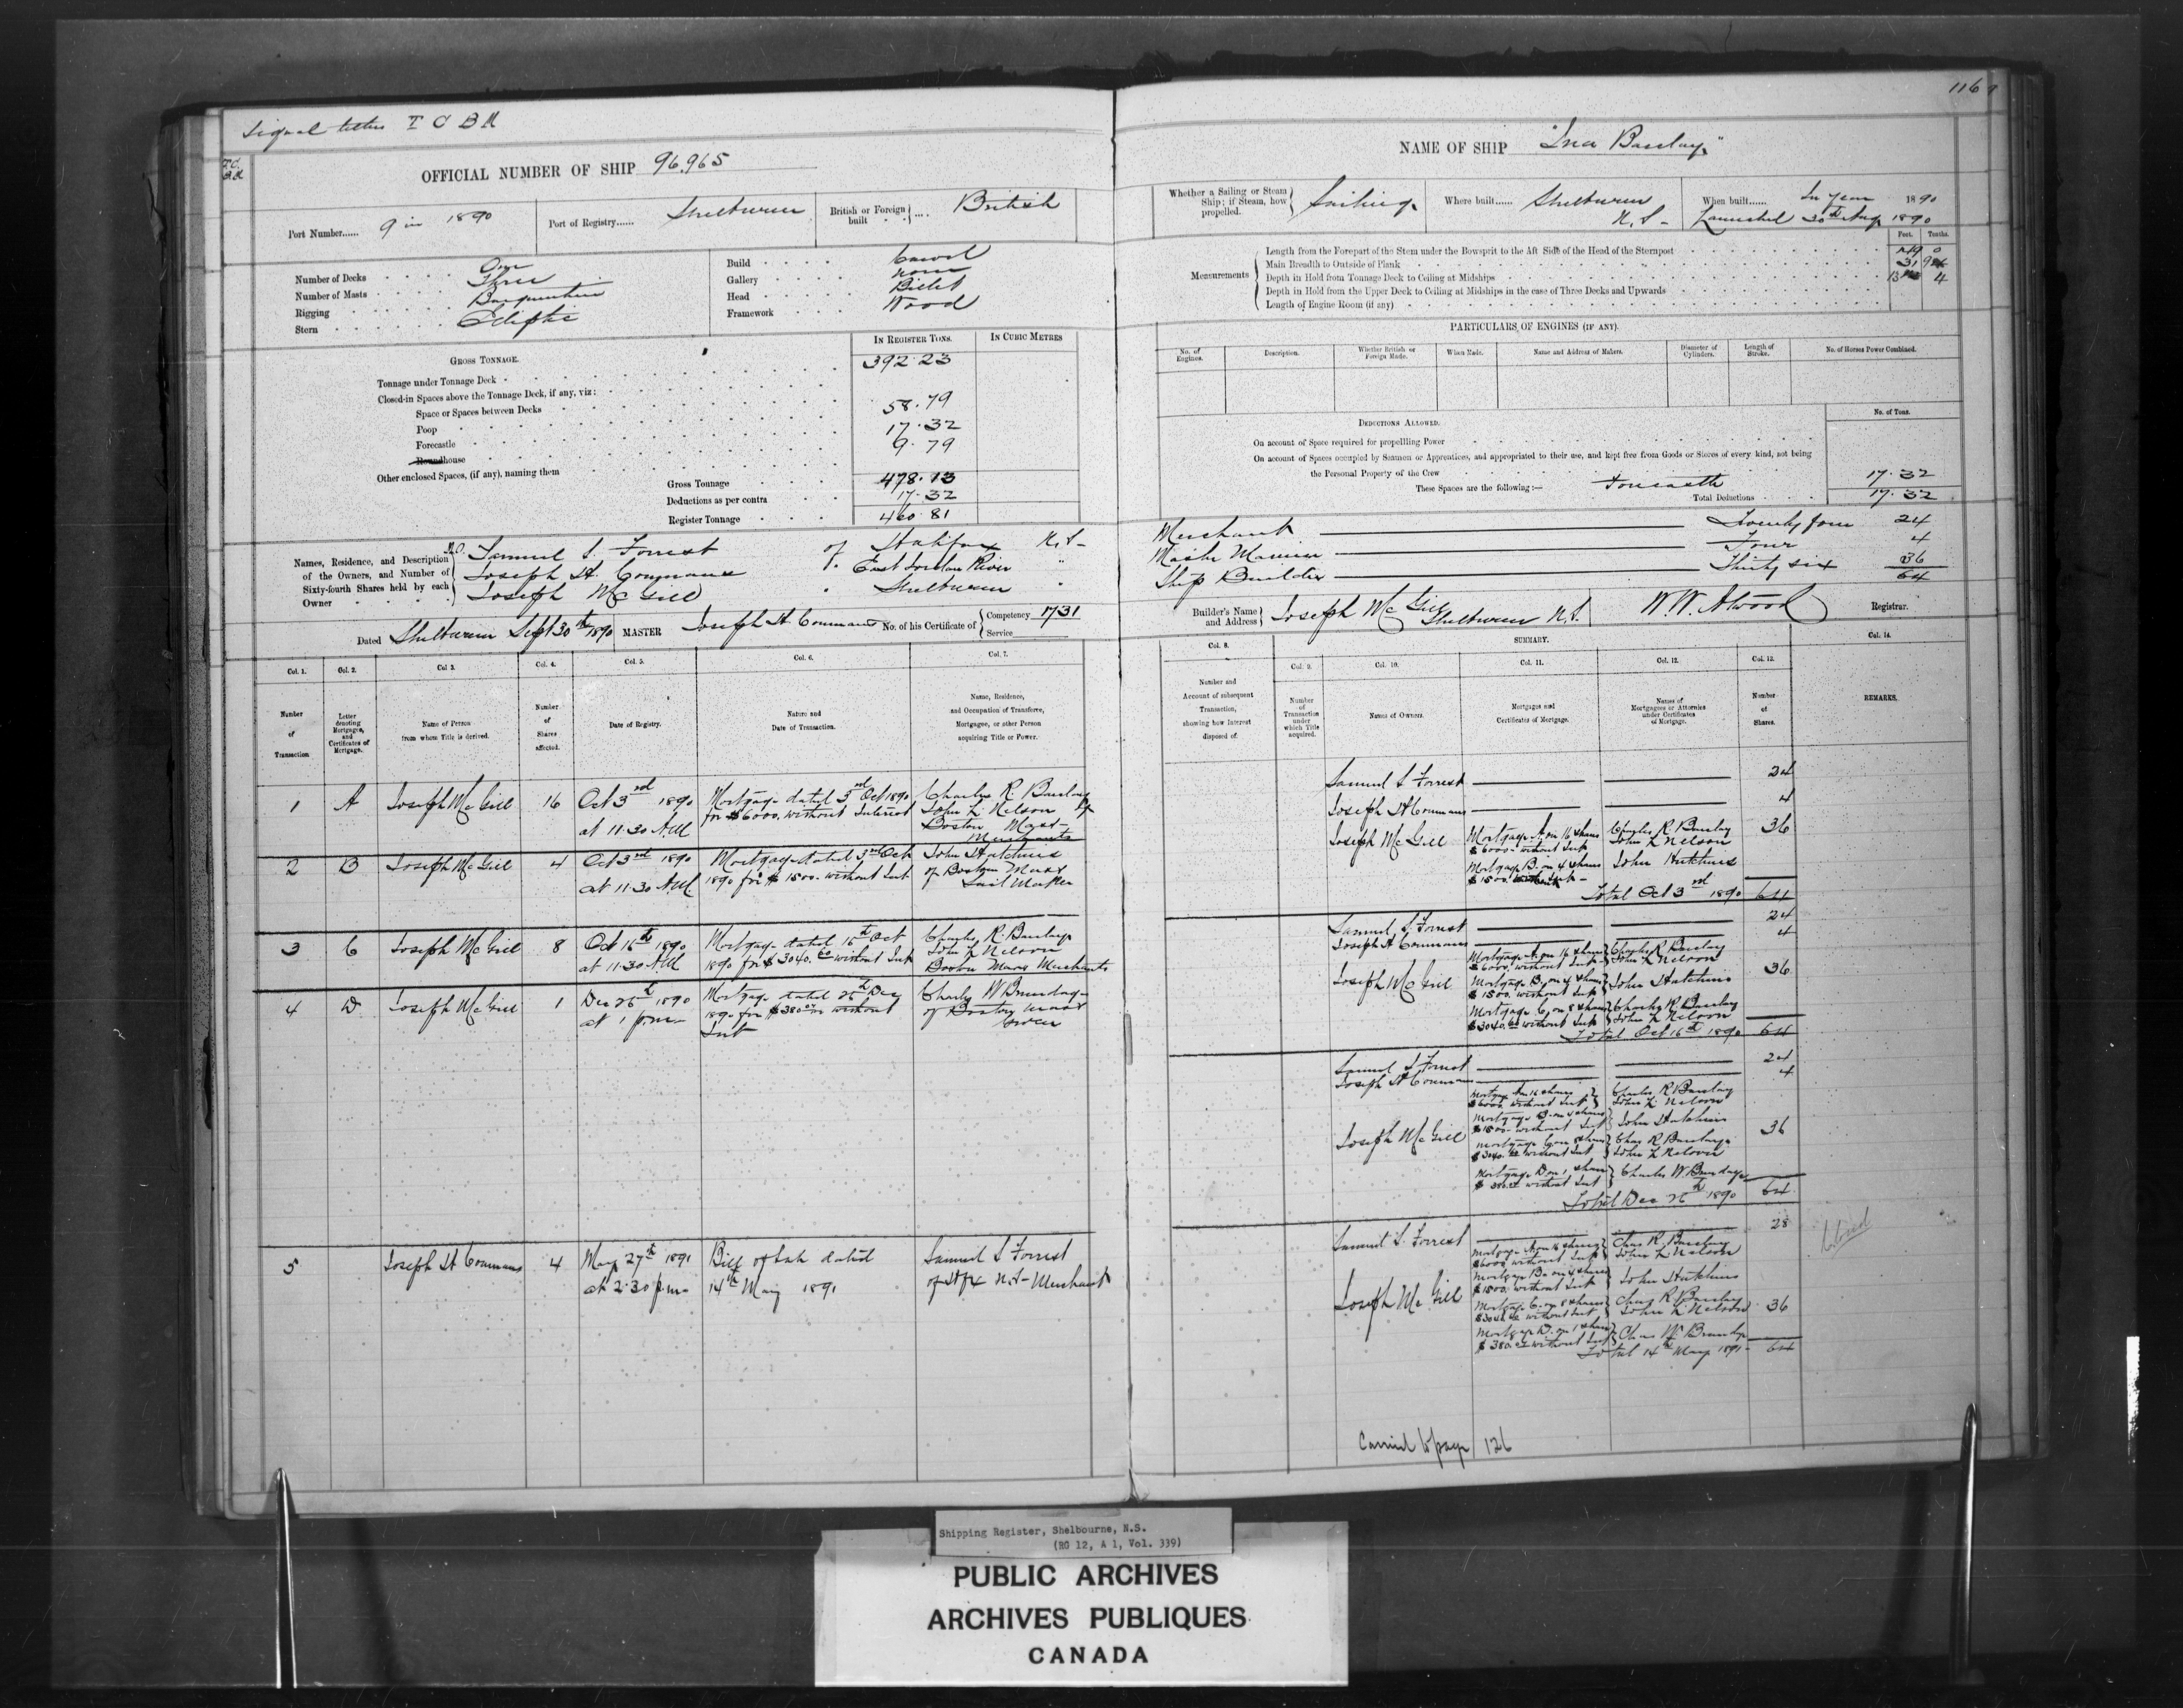 116
Signal letters T C B M
OFFICIAL NUMBER OF SHIP 96,965
Port Number...... 9 in 1890
Port of Registry...... Shelburne
British or Foreign built .... British
Number of Decks One
Number of Masts Three
Rigging Barquentine
Stern Eliptic
Build Carvel
Gallery none
Head Billet
Framework Wood
GROSS TONNAGE.
IN REGISTER TONS.
IN CUBIC METRES
Tonnage under Tonnage Deck 392.23
Closed-in Spaces above the Tonnage Deck, if any, viz:
Space or Spaces between Decks
Poop 58.79
Forecastle 17.32
Roundhouse 9.79
Other enclosed Spaces, (if any), naming them
Gross Tonnage 478.13
Deductions as per contra 17.32
Register Tonnage 460.81
Names, Residence, and Description of the Owners, and Number of Sixty-fourth Shares held by each Owner
M.O. Samuel S. Forrest of Halifax N.S.
Joseph H. of East Jordan River "
Joseph McGill " Shelburne "
Dated Shelburne Sept 30th 1890 MASTER Joseph H No. of his Certificate of Competency 1731
Service
NAME OF SHIP "Ina Barclay"
Whether a Sailing or Steam Ship; if Steam, how propelled. Sailing
Where built...... Shelburne N.S.
When built...... In Year 1890
Launched 30th Aug 1890
Feet. Tenths.
Measurements
Length from the Forepart of the Stem under the Bowsprit to the Aft Side of the Head of the Sternpost
Main Breadth to Outside of Plank 31 9
Depth in Hold from Tonnage Deck to Ceiling at Midships 13 4
Depth in Hold from the Upper Deck to Ceiling at Midships in the case of Three Decks and Upwards
Length of Engine Room (if any)
PARTICULARS OF ENGINES (IF ANY).
No. of Engines.
Description.
Whether British or Foreign Made.
When Made.
Name and Address of Makers.
Diameter of Cylinders.
Length of Stroke.
No. of Horses Power Combined.
DEDUCTIONS ALLOWED.
No. of Tons.
On account of Space required for propelling Power
On account of Spaces occupied by Seamen or Apprentices, and appropriated to their use, and kept free from Goods or Stores of every kind, not being
the Personal Property of the Crew
These Spaces are the following:— Forecastle 17.32
Total Deductions 17.32
Merchant Twenty four 24
Master Mariner Four 4
Ship Builder Thirty six 36
64
Builder's Name and Address Joseph McGill Shelburne N.S. W.W. Atwood Registrar.
Col. 1. Number of Transaction
Col. 2. Letter denoting Mortgages, and Certificates of Mortgage.
Col 3. Name of Person from whom Title is derived.
Col. 4. Number of Shares affected.
Col. 5. Date of Registry.
Col. 6. Nature and Date of Transaction.
Col. 7. Name, Residence, and Occupation of Transferee, Mortgagee, or other Person acquiring Title or Power.
1 A Joseph McGill 16 Oct 3rd 1890 at 11.30 A.M.
Mortgage dated 3rd Oct 1890 for $6000. without Interest
Charles R. Barclay John L Nelson of Boston Mass. Merchants
2 B Joseph McGill 4 Oct 3rd 1890 at 11.30 A.M.
Mortgage dated 3rd Oct 1890 for $1500. without Int
John Hutchins of Boston Mass Sail Maker
3 C Joseph McGill 8 Oct 16th 1890 at 11.30 A.M
Mortgage dated 15th Oct 1890 for $3040.60 without Int
Charles R. Barclay John L Nelson Boston Mass Merchants
4 D Joseph McGill 1 Dec 26th 1890 at 1 p.m
Mortgage dated 26th Dec 1890 for $380 without Int
Charles W Brundage of Boston Mass
5 Joseph H 4 May 27th 1891 at 2.30 p.m
Bill of Sale dated 14th May 1891
Samuel S Forrest of Hfx N.S. Merchant
SUMMARY.
Col. 8. Number and Account of subsequent Transaction, showing how Interest disposed of.
Col. 9. Number of Transaction under which Title acquired.
Col. 10. Names of Owners.
Col. 11. Mortgages and Certificates of Mortgage.
Col. 12. Names of Mortgagees or Attornies under Certificates of Mortgage.
Col. 13. Number of Shares.
Col. 14. REMARKS.
Samuel S Forrest 24
Joseph H 4
Joseph McGill 36
Mortgage A on 16 shares $6000. without Int Charles R Barclay John L Nelson
Mortgage B. on 4 shares $1500. without Int John Hutchins
Total Oct 3rd 1890 64
Samuel S. Forrest 24
Joseph H 4
Joseph McGill 36
Mortgage A on 16 shares $6000. without Int Charles R Barclay John L Nelson
Mortgage B, on 4 shares $1500. without Int John Hutchins
Mortgage C, on 8 shares $3040.60 without Int Charles R Barclay John L Nelson
Total Oct 16th 1890 64
Samuel S Forrest 24
Joseph H 4
Joseph McGill 36
Mortgage A on 16 shares $6000. without Int Charles R Barclay John L Nelson
Mortgage B. on 4 shares $1500. without Int John Hutchins
Mortgage C on 8 shares $3040.60 without Int Chas R Barclay John L Nelson
Mortgage D on 1 share $380 without Int Charles W. Brundage
Total Dec 26th 1890 64
Samuel S. Forrest 28
Joseph McGill 36
Mortgage A on 16 shares $6000 without Int Chas R. Barclay John L Nelson
Mortgage B. on 4 shares $1500. without Int John Hutchins
Mortgage C. on 8 shares $3040.60 without Int Chas R Barclay John L Nelson
Mortgage D. on 1 share $380 without Int Chas W Brundage
Total 14th May 1891 64
Closed
Carried to page 126
Shipping Register, Shelbourne, N.S.
(RG 12, A 1, Vol. 339)
PUBLIC ARCHIVES
ARCHIVES PUBLIQUES
CANADA